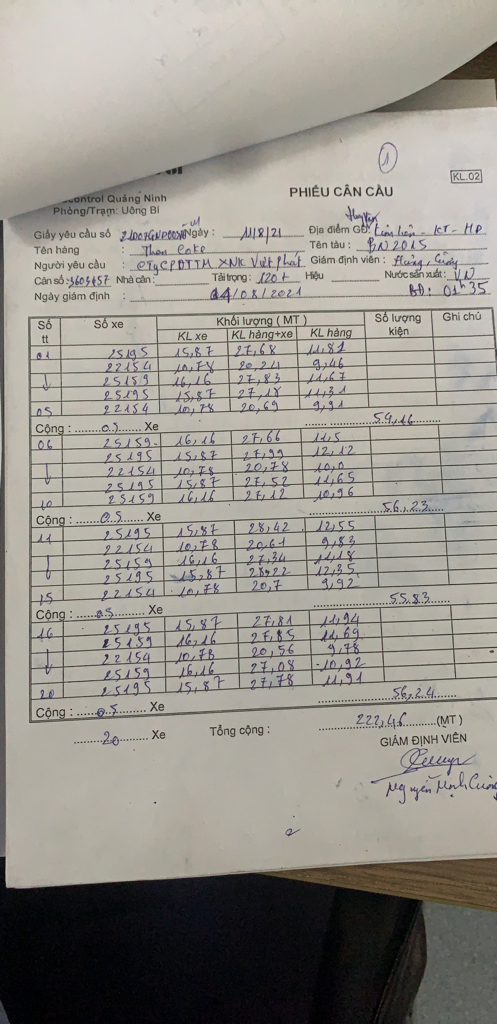 control Quảng Ninh
Phòng/Trạm: Uông Bí
1
KL.02
PHIẾU CÂN CẦU
Giấy yêu cầu số Ngày : 11/8/21 Địa điểm GĐ - KT - HP
Tên hàng : Than Coke Tên tàu : BN2015
Người yêu cầu : CTyCPĐTTM XNK Việt phát Giám định viên : Hưng, Cường
Cân số : 3603457 Nhà cân : Tải trọng : 120T Hiệu Nước sản xuất : VN
Ngày giám định : 14/08/2021 BĐ: 01h35
Số tt Số xe Khối lượng ( MT ) Số lượng kiện Ghi chú
KL xe KL hàng+xe KL hàng
01 25195 15,87 27,68 11,81
22154 10,78 20,24 9,46
25159 16,16 27,83 11,67
25195 15,87 27,18 11,31
05 22154 10,78 20,69 9,91
Cộng : 05 Xe 54,16
06 25159 16,16 27,66 11,5
25195 15,87 27,99 12,12
22154 10,78 20,78 10,0
25195 15,87 27,52 11,65
10 25159 16,16 27,12 10,96
Cộng : 05 Xe 56,23
11 25195 15,87 28,42 12,55
22154 10,78 20,61 9,83
25159 16,16 27,34 11,18
25195 15,87 28,22 12,35
15 22154 10,78 20,7 9,92
Cộng : 05 Xe 55,83
16 25195 15,87 27,81 11,94
25159 16,16 27,85 11,69
22154 10,78 20,56 9,78
25159 16,16 27,08 10,92
20 25195 15,87 27,78 11,91
Cộng : 05 Xe 56,24
20 Xe Tổng cộng : 222,46 (MT )
GIÁM ĐỊNH VIÊN
Nguyễn Mạnh Cường